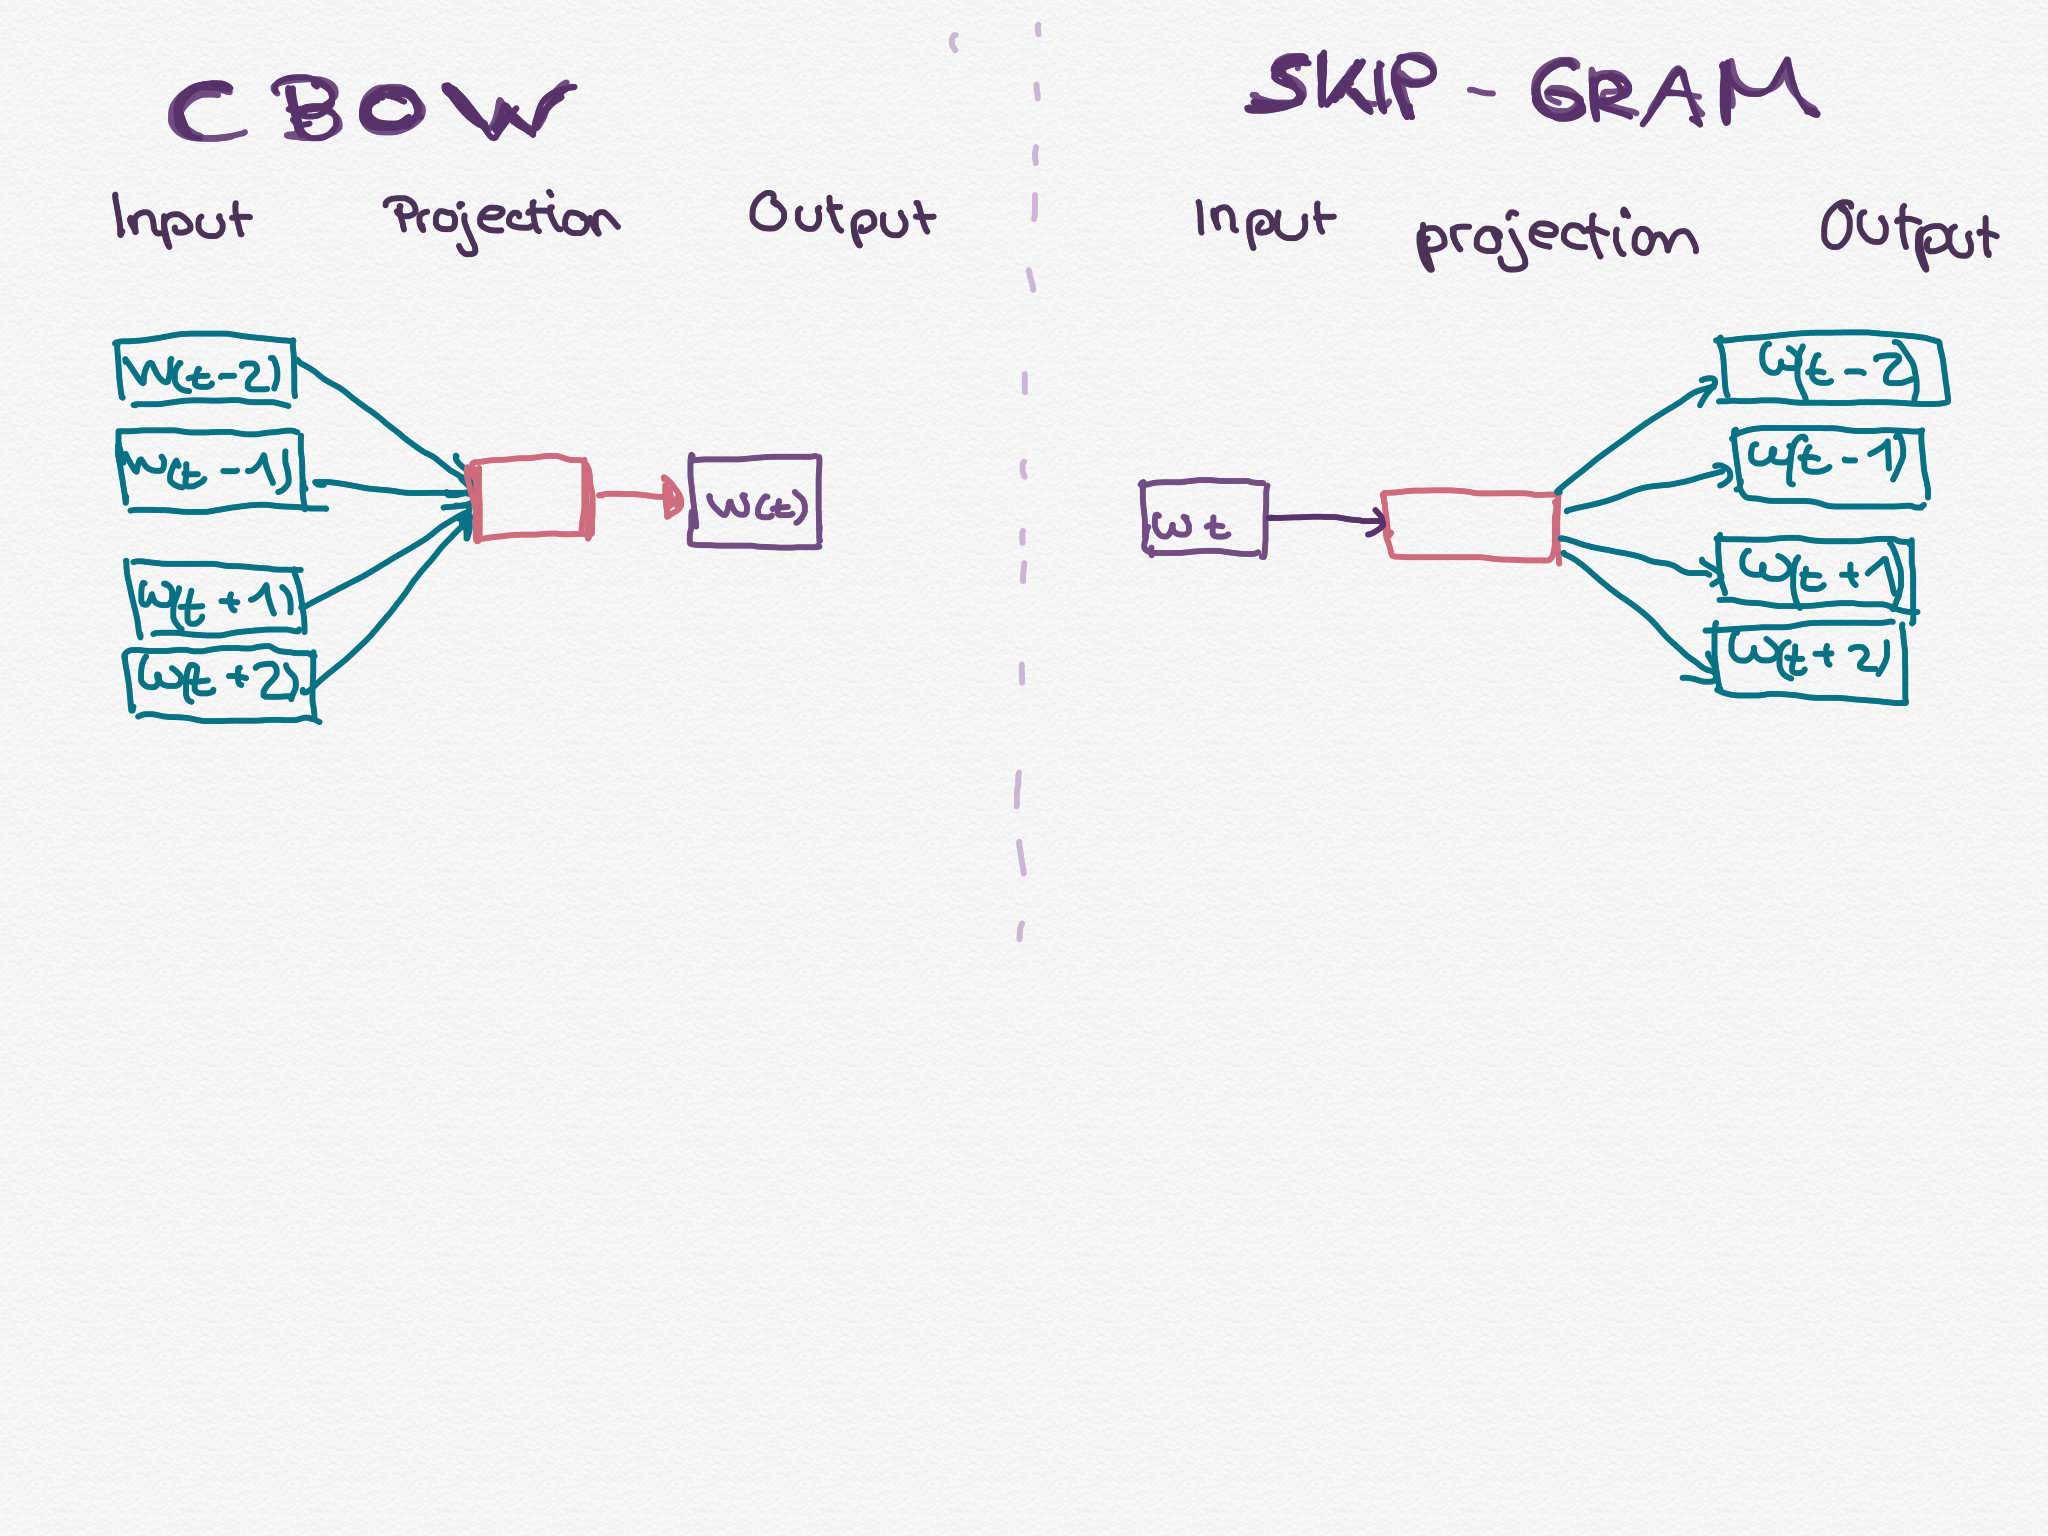 CBOW
Input Projection Output
W(t-2)
W(t-1)
W(t+1)
W(t+2)
W(t)
SKIP-GRAM
Input projection Output
Wt
W(t-2)
W(t-1)
W(t+1)
W(t+2)